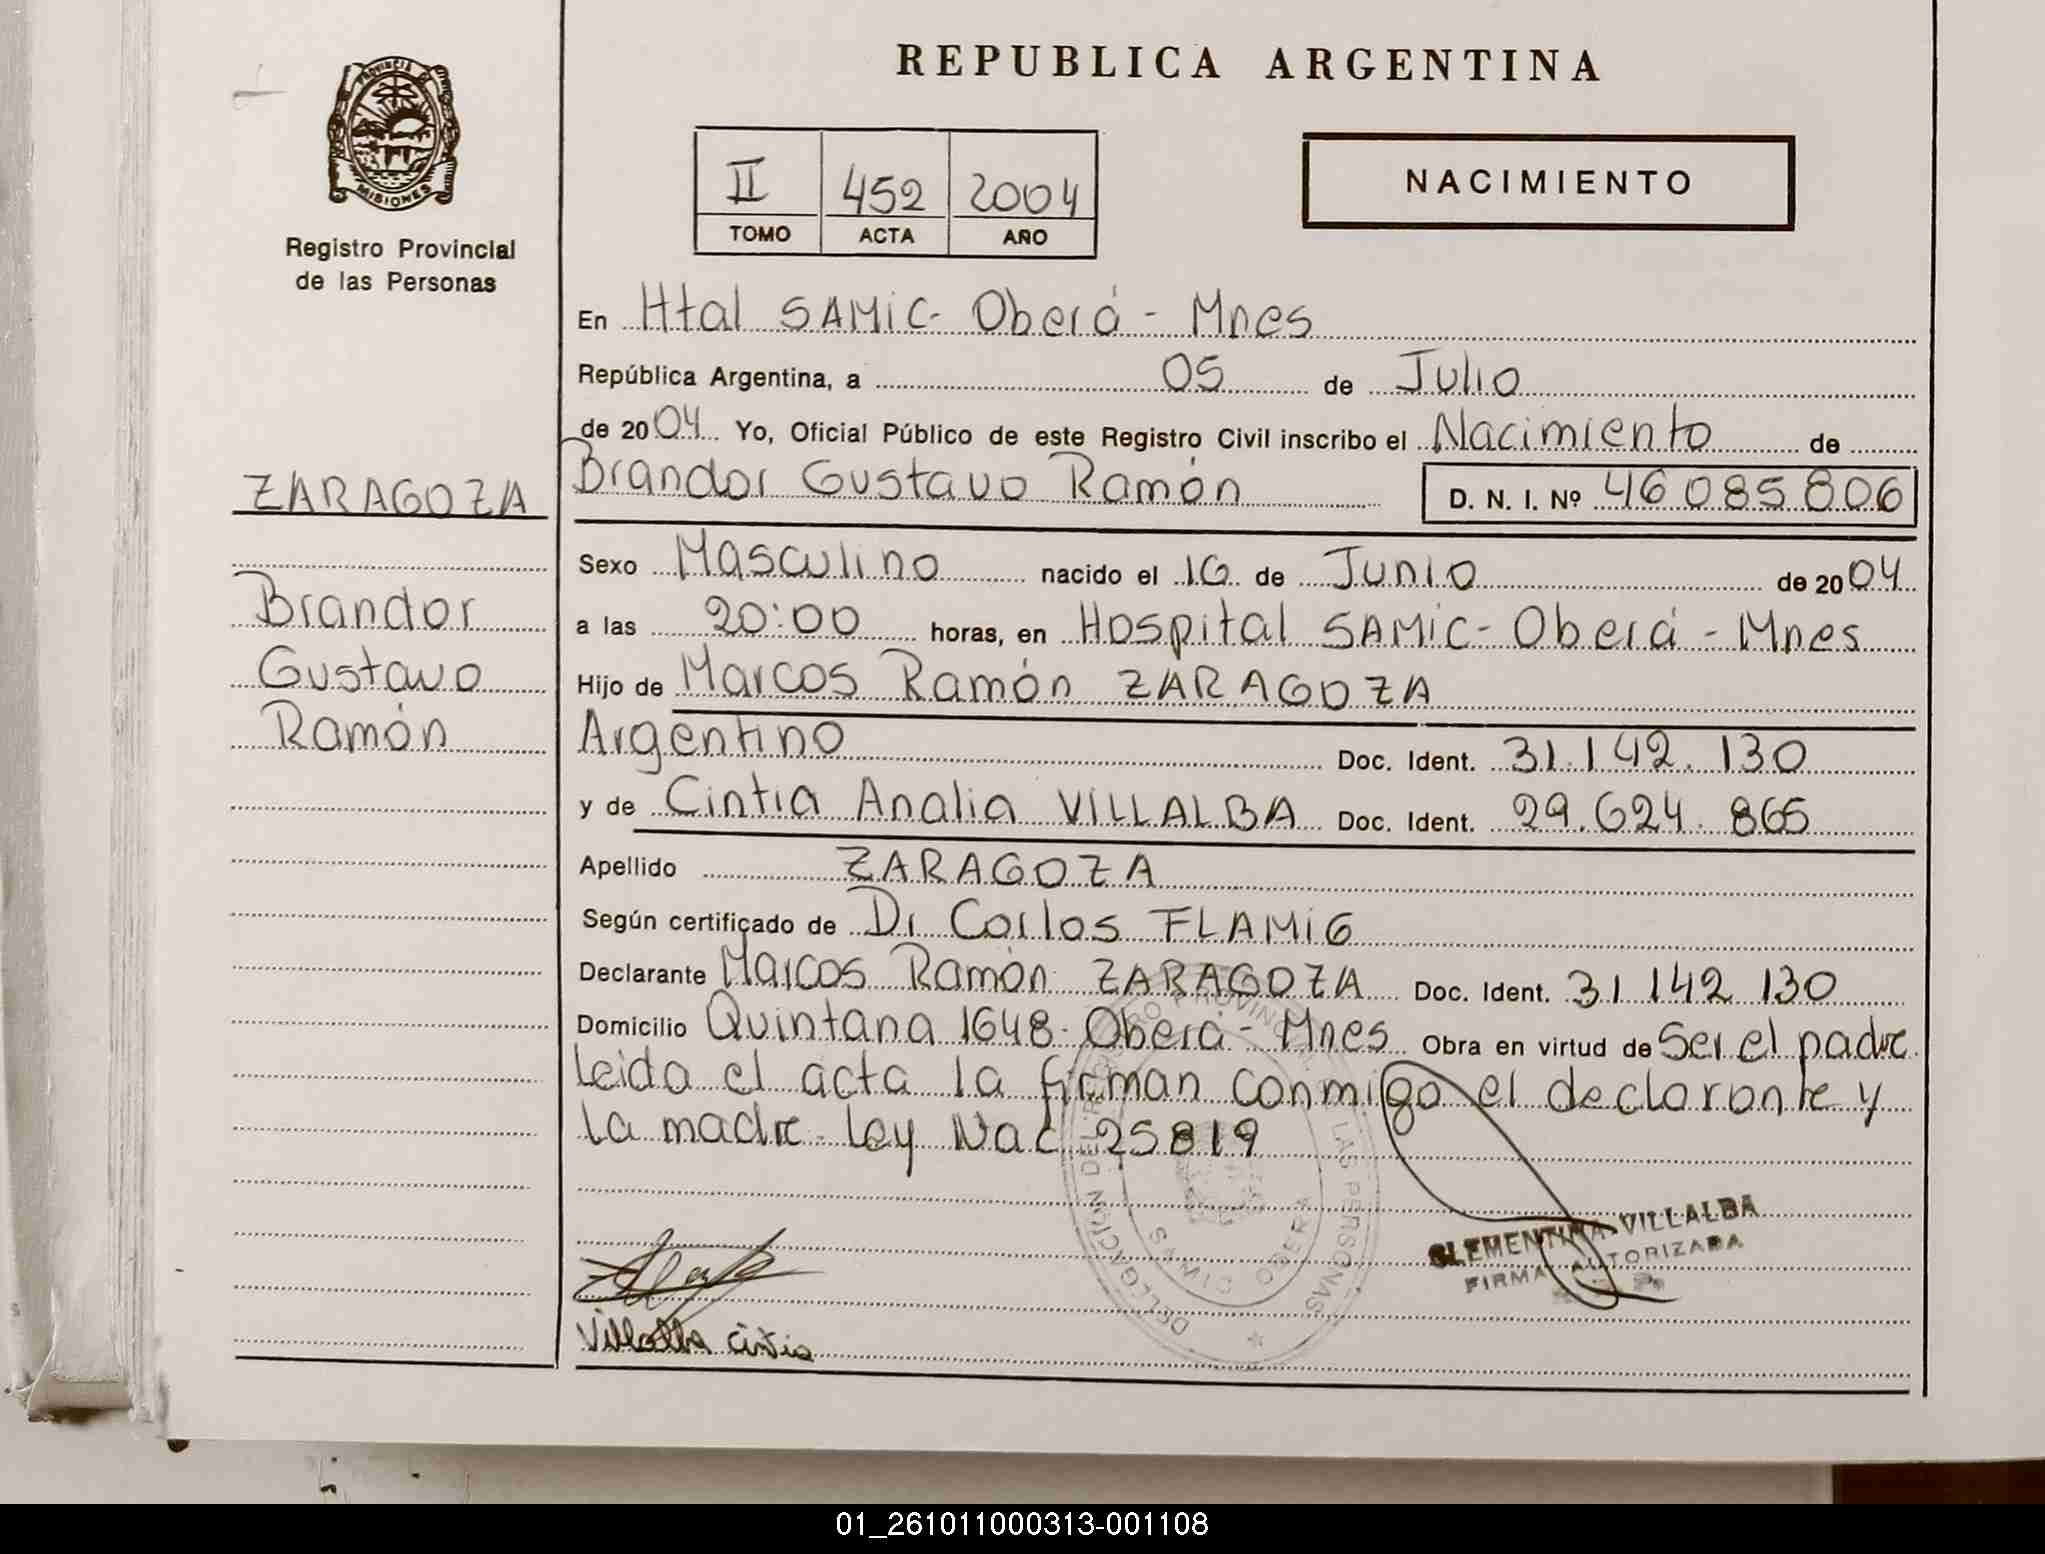 REPUBLICA ARGENTINA
PROVINCIA DE
MISIONES
Registro Provincial
de las Personas
II 452 2004
TOMO ACTA AÑO
NACIMIENTO
En Htal SAMIC- Oberá - Mnes
República Argentina, a 05 de Julio
de 2004 Yo, Oficial Público de este Registro Civil inscribo el Nacimiento de
Brandor Gustavo Ramón D. N. I. Nº 46 085 806
ZARAGOZA
Brandor
Gustavo
Ramón
Sexo Masculino nacido el 16 de Junio de 2004
a las 20:00 horas, en Hospital SAMIC- Oberá - Mnes
Hijo de Marcos Ramón ZARAGOZA
Argentino Doc. Ident. 31.142.130
y de Cintia Analia VILLALBA Doc. Ident. 29.624.865
Apellido ZARAGOZA
Según certificado de Dr Carlos FLAMIG
Declarante Marcos Ramón ZARAGOZA Doc. Ident. 31 142 130
Domicilio Quintana 1648- Oberá - Mnes Obra en virtud de Ser el padre
leida el acta la firman conmigo el declarante y
la madre- Ley Nac 25819
DELEGACION DEL REGISTRO PROVINCIAL DE LAS PERSONAS
OBERA
CLEMENTINA VILLALBA
FIRMA AUTORIZADA
Villalba Cintia
01_261011000313-001108